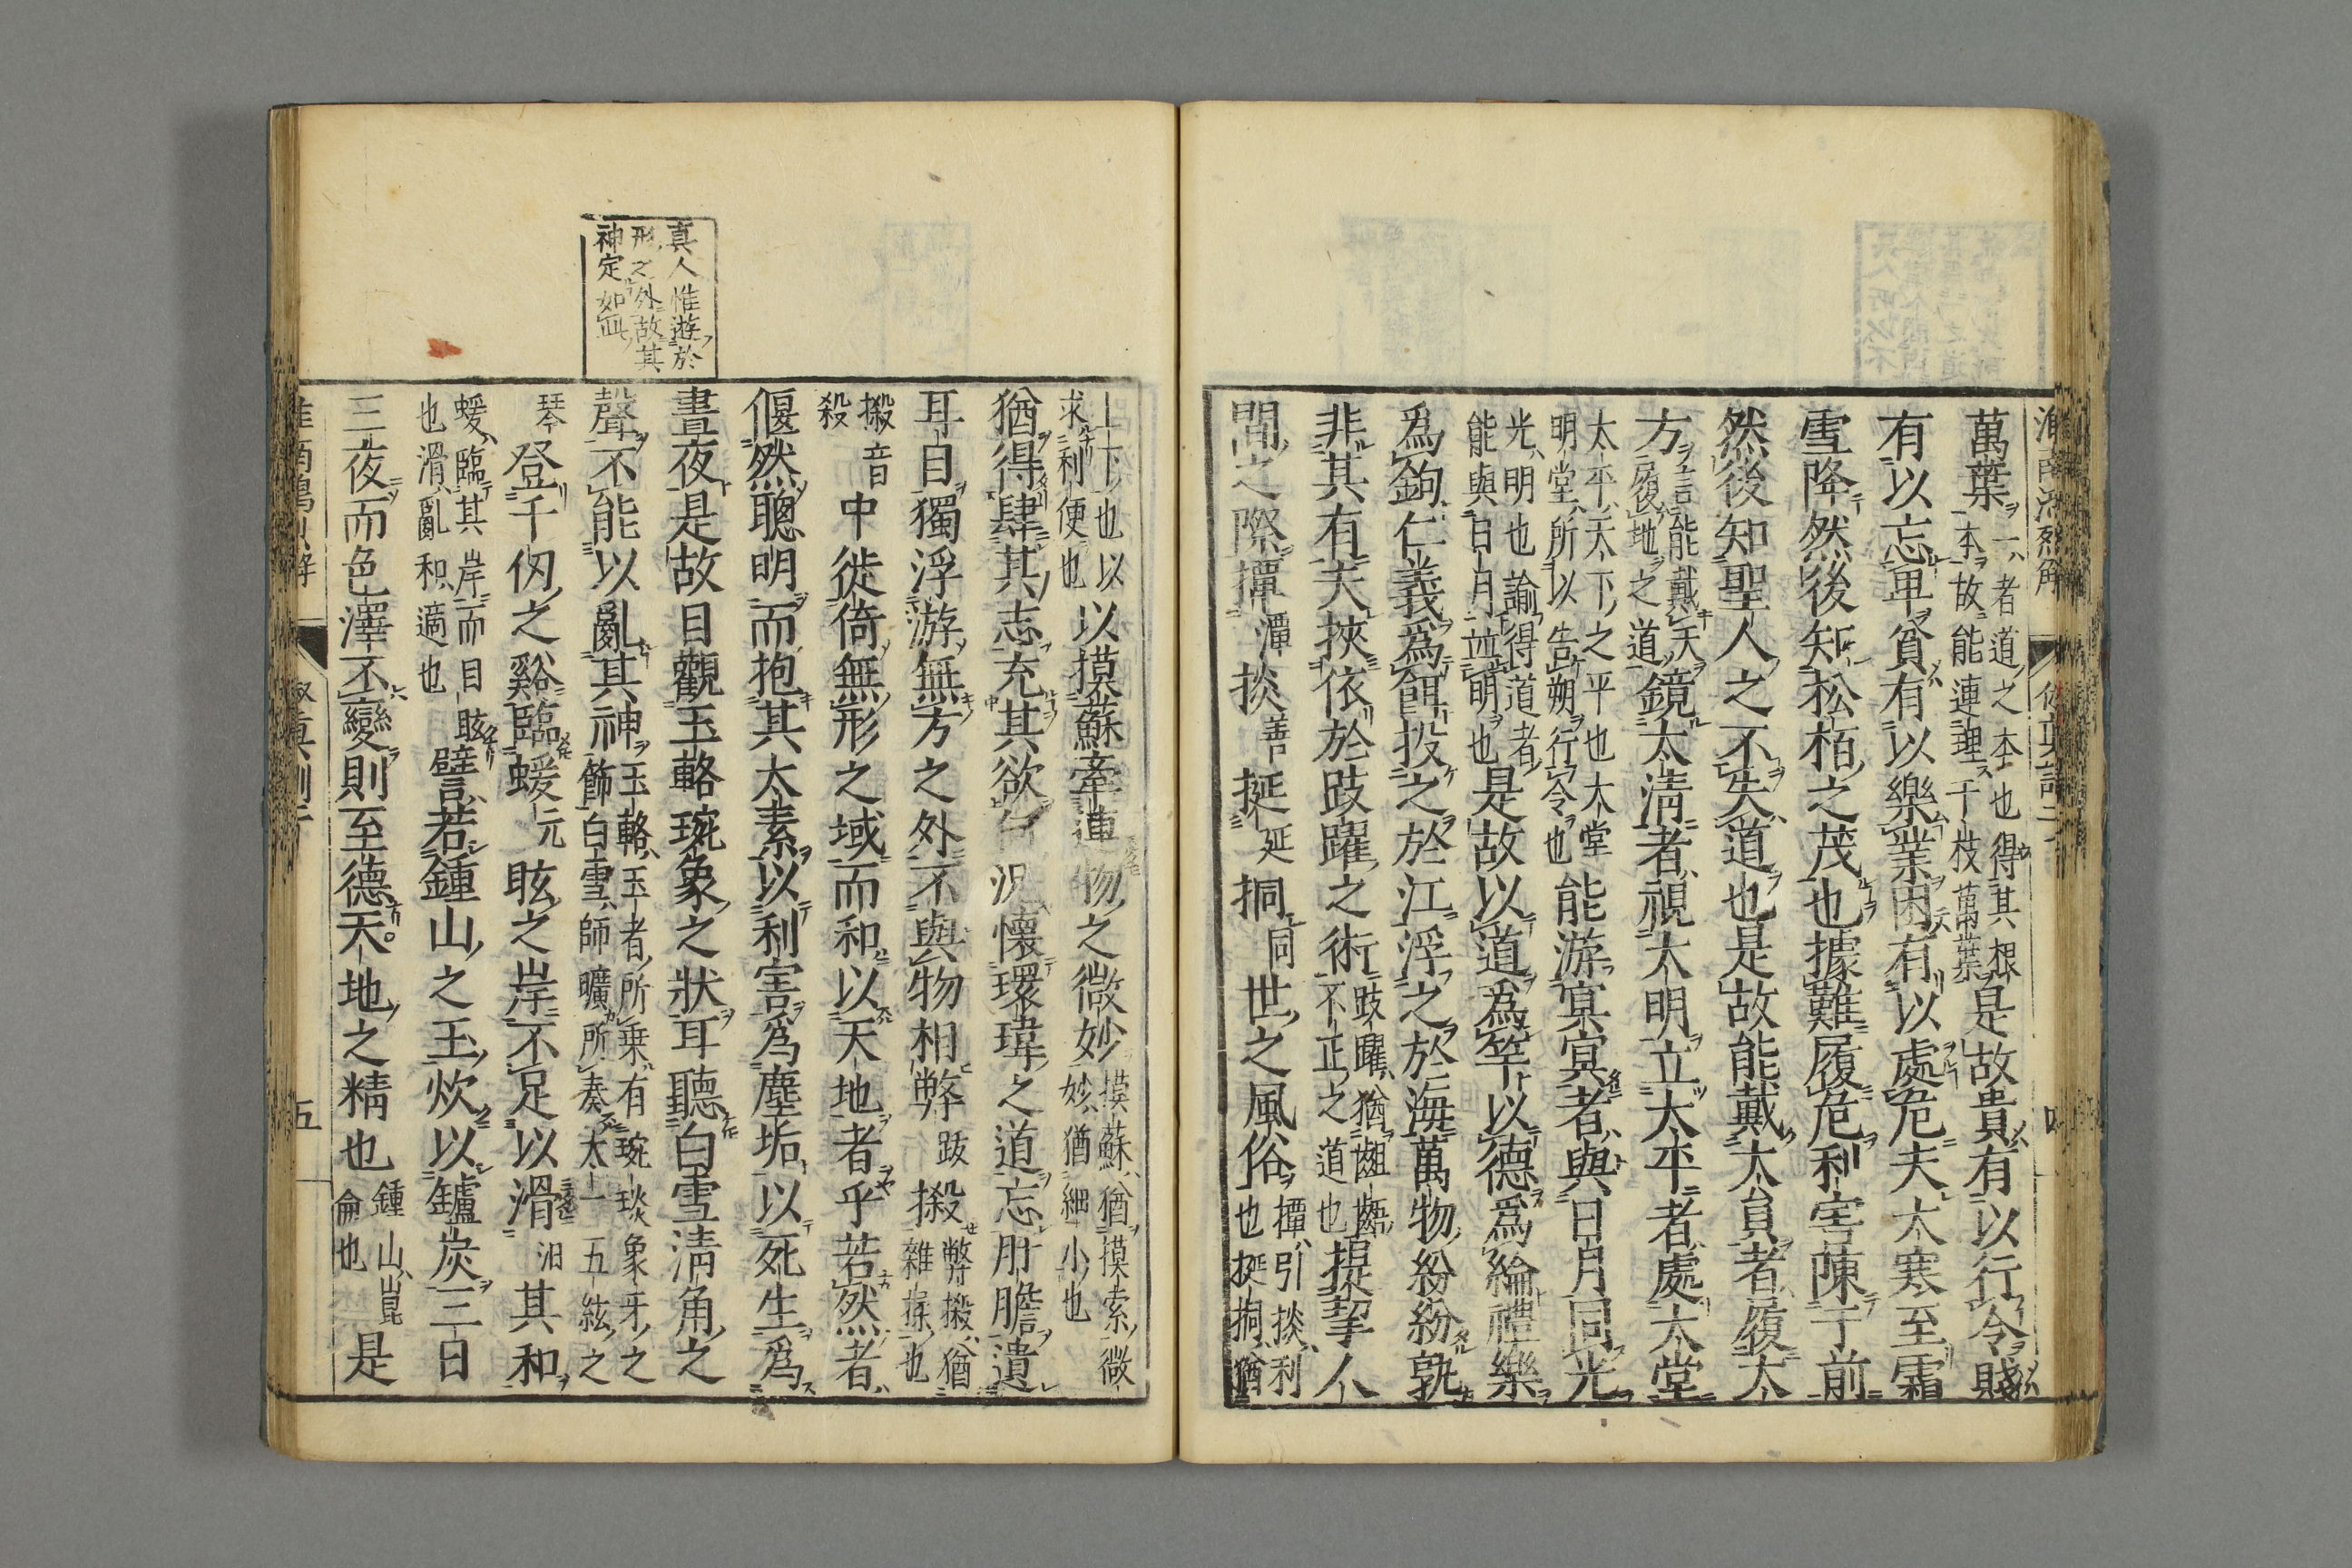 萬葉一者道之本也得其根本故能連理千枝萬葉是故貴有以行令賤
有以忘卑貧有以樂業困有以處危夫大寒至霜
雪降然後知松栢之茂也據難履危利害陳于前
然後知聖人之不失道也是故能戴大員者履大
方言能戴天履地之道鏡太淸者視大明立太平者處大堂
太平天下之平也大堂明堂所以告朔行令也能游冥冥者與日月同光
光明也諭得道者能與日月竝明也是故以道爲竿以德爲綸禮樂
爲鉤仁義爲餌投之於江浮之於海萬物紛紛孰
非其有夫挾依於跂躍之術跂躍猶齟齬不正之道也提挈人
間之際撢潭掞善挻延挏同世之風俗撢引掞利也挻挏猶
上下也以求利便也以摸蘇牽連物之微妙摸蘇猶摸索微妙猶細小也
猶得肆其志充其欲況懷瓌瑋之道忘肝膽遺
耳目獨浮游無方之外不與物相弊跋摋弊摋猶雜揉也
摋音殺中徙倚無形之域而和以天地者乎若然者
偃然聰明而抱其太素以利害爲塵垢以死生爲
晝夜是故目觀玉輅琬象之狀耳聽白雪淸角之
聲不能以亂其神玉輅玉者所乗有琬琰象牙之飾白雪師曠所奏太一五絃之
琴登千仭之谿臨蝯元眩之岸不足以滑汨其和
蝯臨其岸而目眩也滑亂和適也譬若鍾山之玉炊以鑪炭三日
三夜而色澤不變則至德天地之精也鍾山崑崙也是
五
真人惟遊於
形之外故其
神定如此